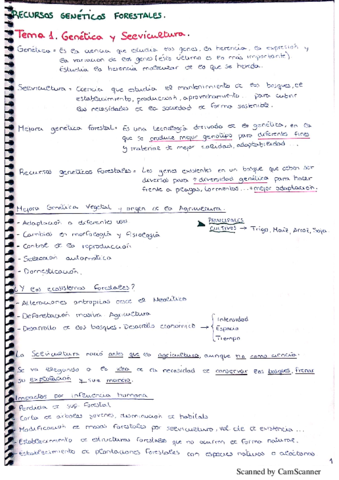 RECURSOS GENÉTICOS FORESTALES.
Tema 1. Genética y Selvicultura.
Genética = Es la ciencia que estudia los genes, la herencia, la expresión y
la variación de los genes (esto último es lo más importante)
Estudia la herencia molecular de lo que se hereda.
Selvicultura = Ciencia que estudia el mantenimiento de los bosques, el
establecimiento, producción, aprovechamiento para cubrir
las necesidades de la sociedad de forma sostenible.
Mejora genética forestal = Es una tecnología derivada de la genética, en la
que se produce mejor genotipo para diferentes fines
y material de mejor calidad, adaptabilidad
Recursos Genéticos Forestales = Los genes existentes en un bosque que deben ser
diversos para + diversidad genética para hacer
frente a plagas, tormentas ... + mejor adaptación.
Mejora Genética Vegetal y origen de la Agricultura.
- Adaptación a diferentes uso
- Cambios en morfología y Fisiología
PRINCIPALES
CULTIVOS → Trigo, Maíz, Arroz, Soja
- Control de la reproducción
- Selección automática
- Domesticación.
¿Y los ecosistemas Forestales?
- Alteraciones antrópicas desde el Neolítico
- Deforestación masiva Agricultura
- Desarrollo de los bosques - Desarrollo económico →
Intensidad
Espacio
Tiempo
La Selvicultura nació antes que la agricultura, aunque no como ciencia.
Se va llegando a la idea de la necesidad de conservar los bosques, frenar
su explotación y su manera.
Impactos por influencia humana
- Pérdida de sup. Forestal
- Corta de árboles jóvenes, disminución de hábitats
- Modificación de masas forestales por selvicultura
- Establecimiento de estructuras forestales que no ocurren de forma natural.
- Establecimiento de plantaciones forestales con especies nativas o alóctonas
1
Scanned by CamScanner